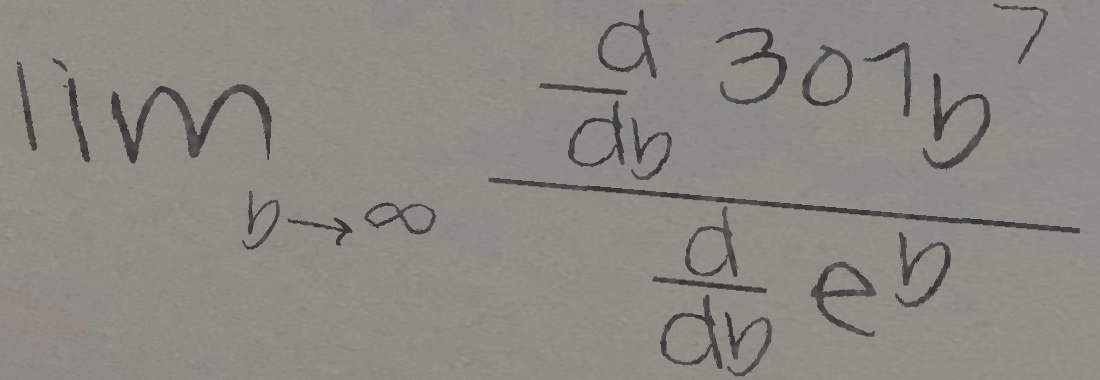 \lim_{b \to \infty} \frac{\frac{d}{db} 301b^7}{\frac{d}{db} e^b}